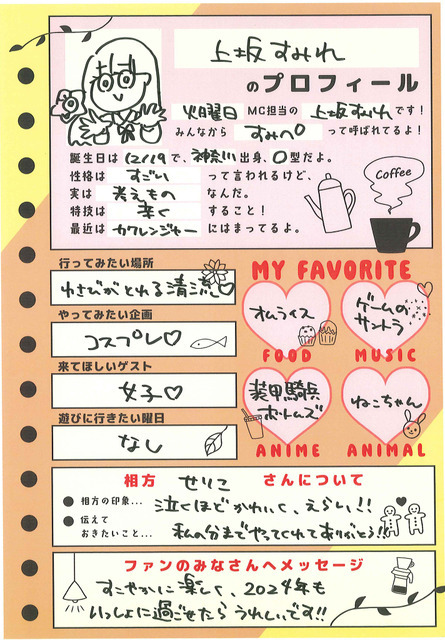 上坂すみれ
のプロフィール
火曜日 MC担当の 上坂すみれ です！
みんなから すみぺ って呼ばれてるよ！
誕生日は 12/19 で、神奈川 出身、O型だよ。
性格は すごい って言われるけど、
実は 考えもの なんだ。
特技は 楽く すること！
最近は カクレンジャー にはまってるよ。
Coffee
行ってみたい場所
わさびがとれる清流♡
やってみたい企画
コスプレ♡
来てほしいゲスト
女子♡
遊びに行きたい曜日
なし
MY FAVORITE
オムライス
FOOD
ゲームのサントラ
MUSIC
装甲騎兵ボトムズ
ANIME
ねこちゃん
ANIMAL
相方 せりこ さんについて
相方の印象... 泣くほどかわいく、えらい!!
伝えておきたいこと... 私の分までやってくれてありがとう!!
ファンのみなさんへメッセージ
すこやかに楽しく、2024年も
いっしょに過ごせたらうれしいです!!